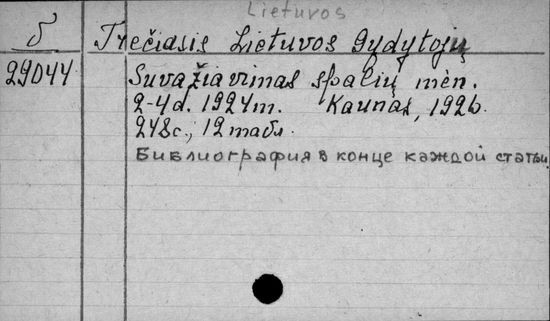 Lietuvos
Б Trečiasis Lietuvos gydytojų
29044 Suvažiavimas spalių mėn.
2-4 d. 1924 m. Kaunas, 1926.
248 с., 12 табл.
Библиография в конце каждой статьи